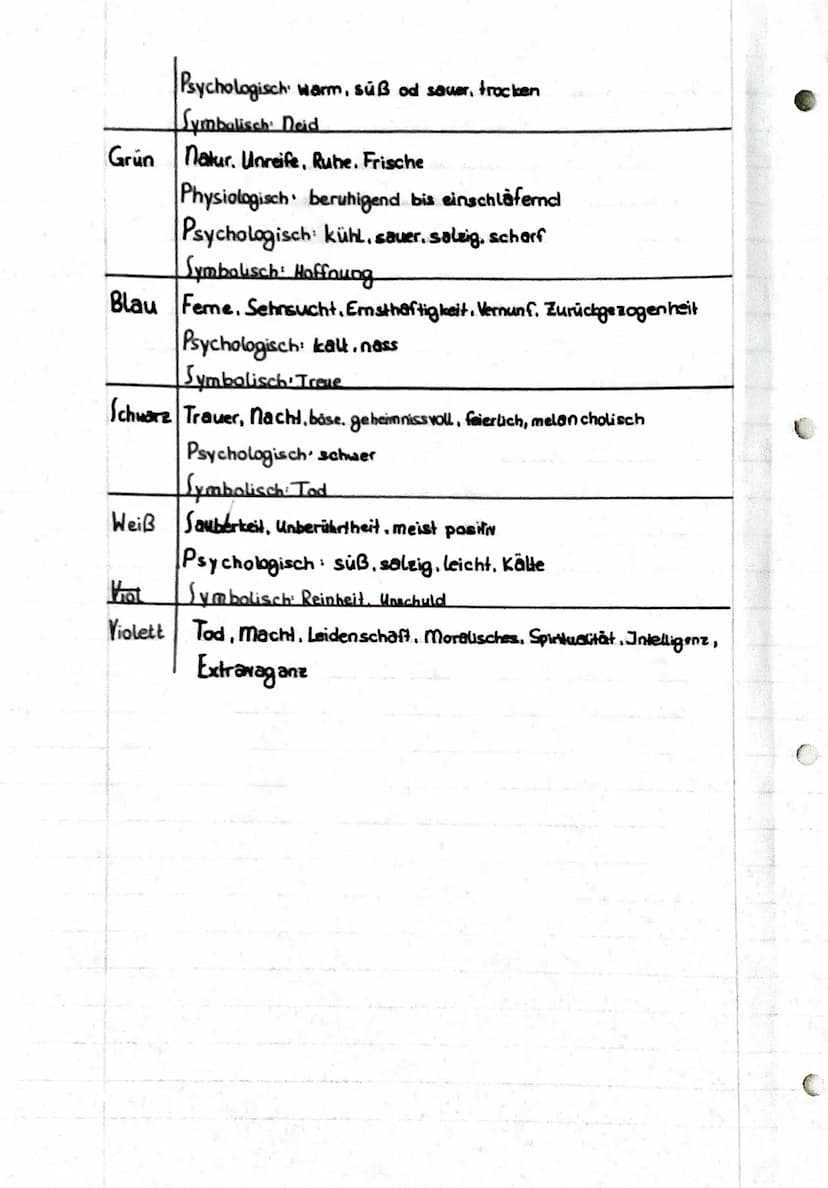 Psychologisch: warm, süß od sauer, trocken
Symbolisch: Neid
Grün Natur, Unreife, Ruhe, Frische
Physiologisch: beruhigend bis einschläfernd
Psychologisch: kühl, sauer, salzig, scharf
Symbolisch: Hoffnung
Blau Ferne, Sehnsucht, Ernsthaftigkeit, Vernunf, Zurückgezogenheit
Psychologisch: kalt, nass
Symbolisch: Treue
Schwarz Trauer, Nacht, böse, geheimnissvoll, feierlich, melancholisch
Psychologisch: schwer
Symbolisch: Tod
Weiß Sauberkeit, Unberührtheit, meist positiv
Psychologisch: süß, salzig, leicht, Kälte
Viol Symbolisch: Reinheit, Unschuld
Violett Tod, Macht, Leidenschaft, Moralisches, Spiritualität, Intelligenz,
Extravaganz